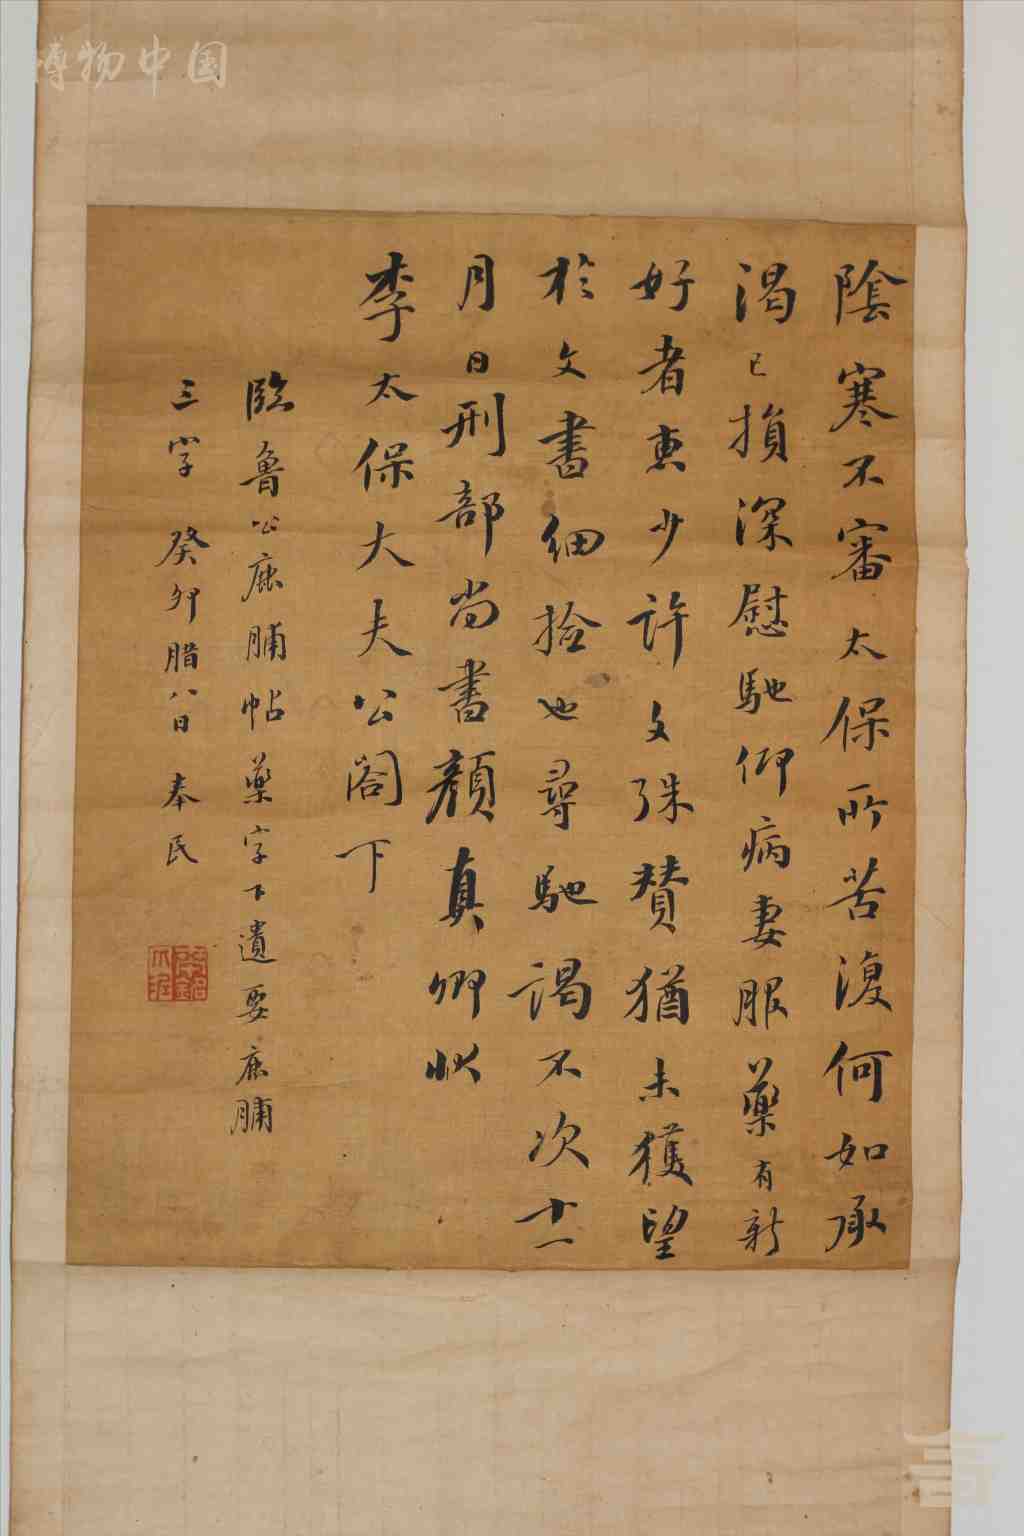 陰寒不審太保所苦復何如承
渴已損深慰馳仰病妻服藥有新
好者惠少許文殊贊猶未獲望
於文書細捡也尋馳謁不次十一
月日刑部尚書顏真卿狀
李太保大夫公閤下
臨魯公鹿脯帖藥字下遺要鹿脯
三字 癸卯腊八日 奉民
博物中国